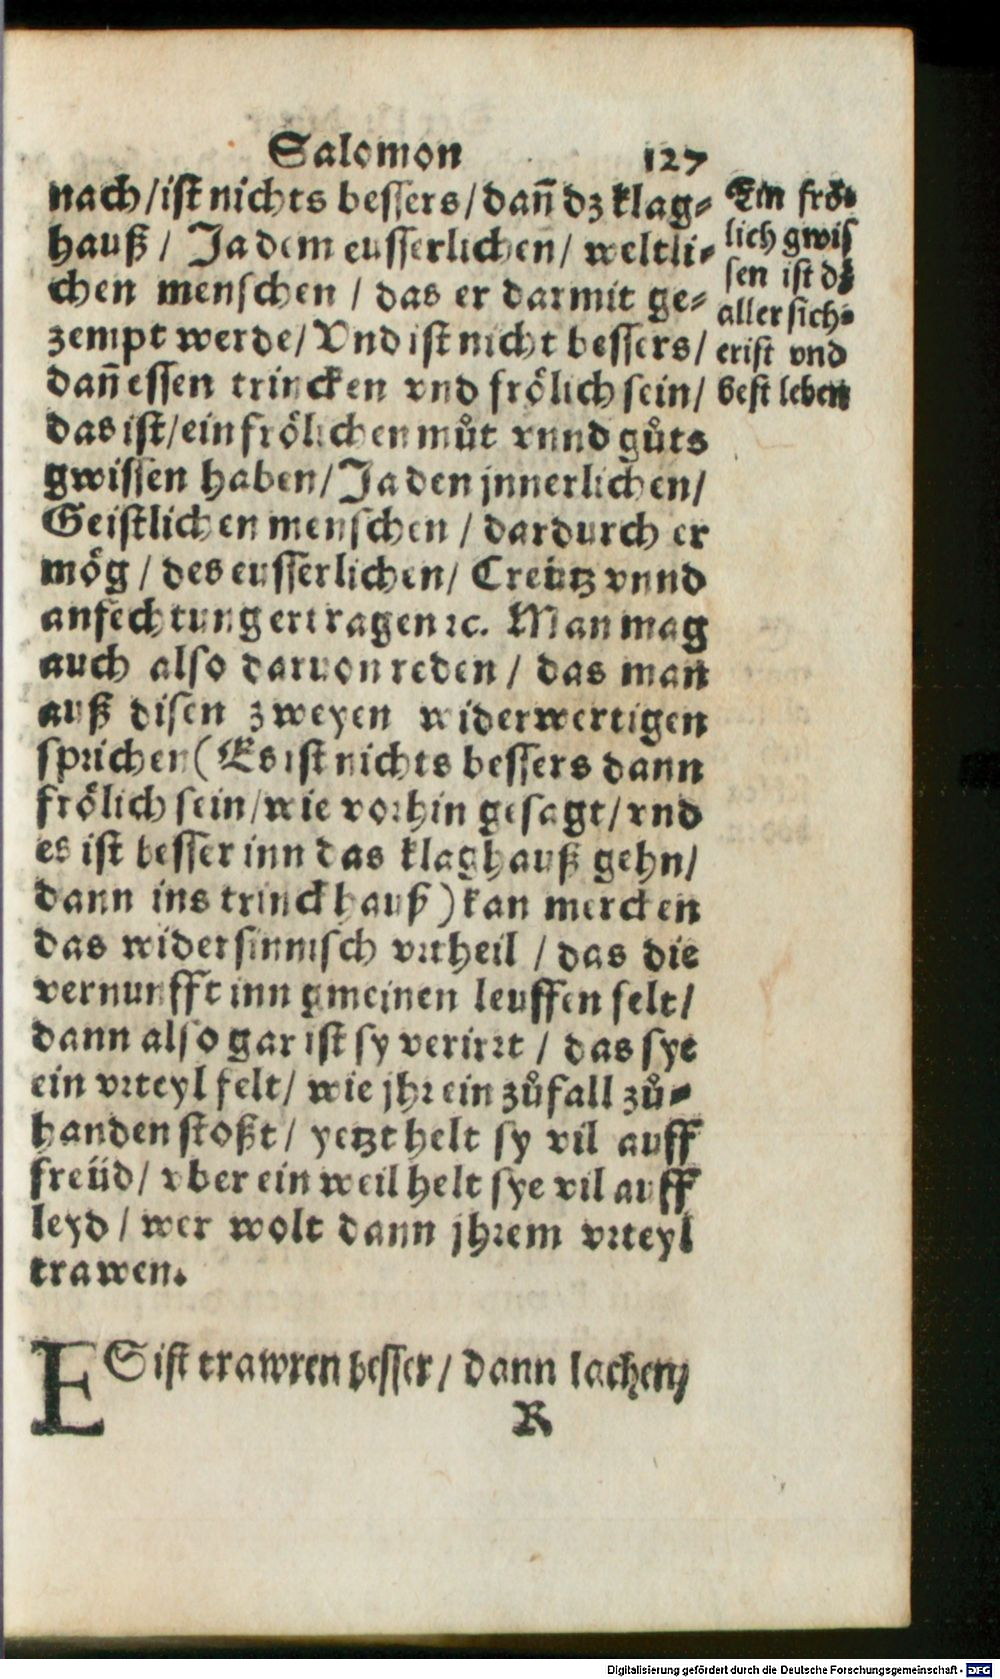 Salomon 127
nach/ist nichts bessers/dañ dz klag-
hauß / Ja dem eusserlichen/ weltli-
chen menschen / das er darmit ge-
zempt werde/ Vnd ist nicht bessers/
dañ essen trincken vnd frölich sein/
das ist/ein frölichen můt vnnd gůts
gwissen haben/ Ja den jnnerlichen/
Geistlichen menschen / dardurch er
mög / des eusserlichen/ Creütz vnnd
anfechtung ertragen ꝛc. Man mag
auch also daruon reden / das man
auß disen zweyen widerwertigen
sprichen (Es ist nichts bessers dann
frölich sein/wie vorhin gesagt/vnd
es ist besser inn das klaghauß gehn/
dann ins trinckhauß) kan mercken
das widersinnisch vrtheil / das die
vernunfft inn gmeinen leuffen felt/
dann also gar ist sy verirrt / das sye
ein vrteyl felt/ wie jhr ein zůfall zů-
handen stoßt/ yetzt helt sy vil auff
freüd/ vber ein weil helt sye vil auff
leyd / wer wolt dann jhrem vrteyl
trawen.
Ein frö-
lich gwis
sen ist dz
aller sich-
erist vnd
best leben
ES ist trawren besser/ dann lachen/
R
Digitalisierung gefördert durch die Deutsche Forschungsgemeinschaft - DFG